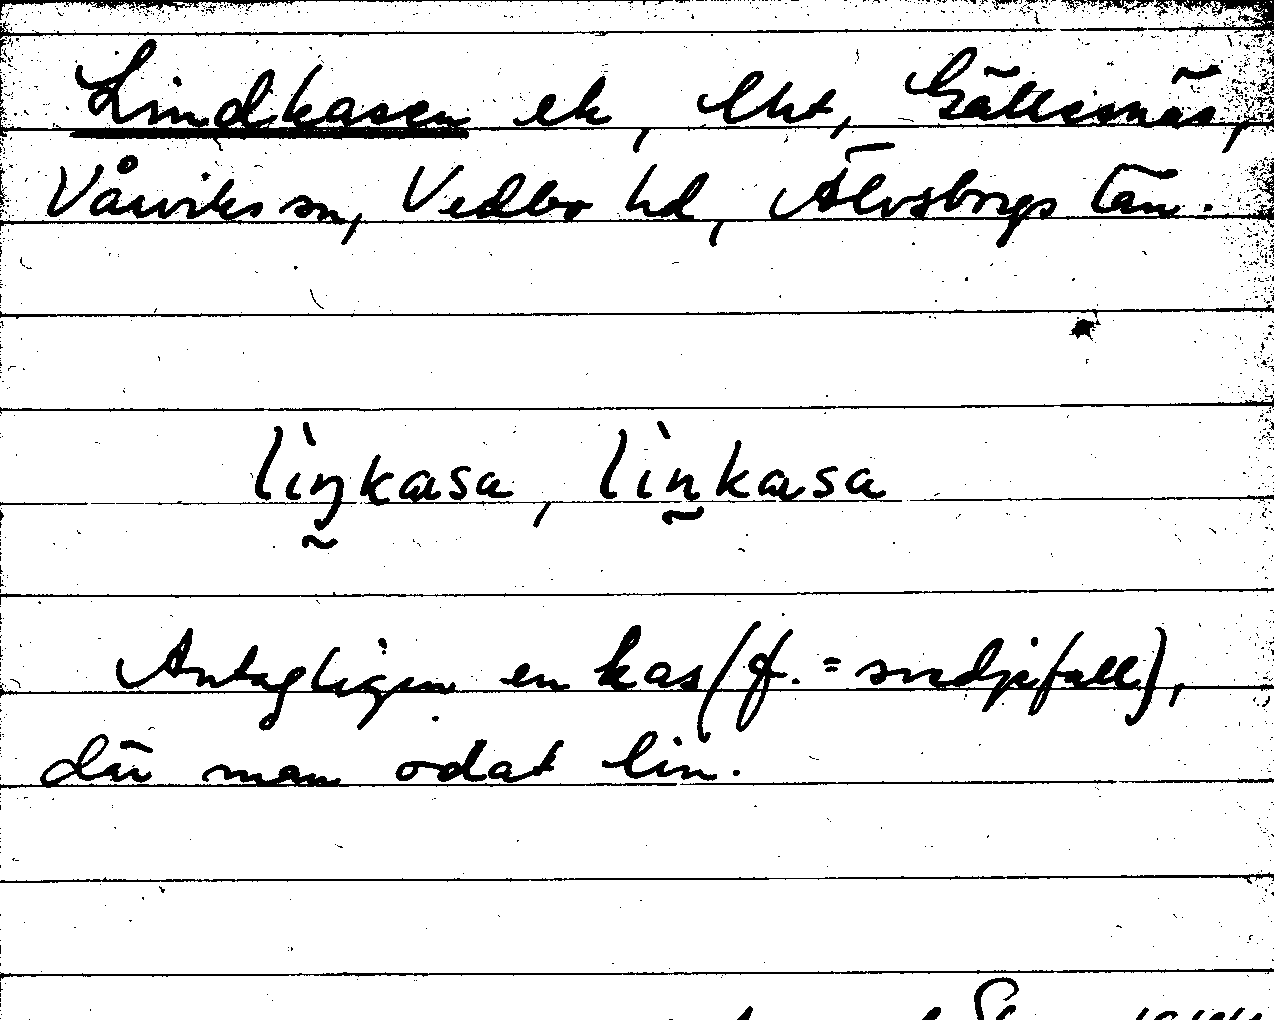 Lindkasen ek, lht, Gällesnäs,
Vårviks sn, Vedbo hd, Älvsborgs län.
lìŋkasa, lìnkasa
Antagligen en kas (f. = svedjefall),
där man odat lin.